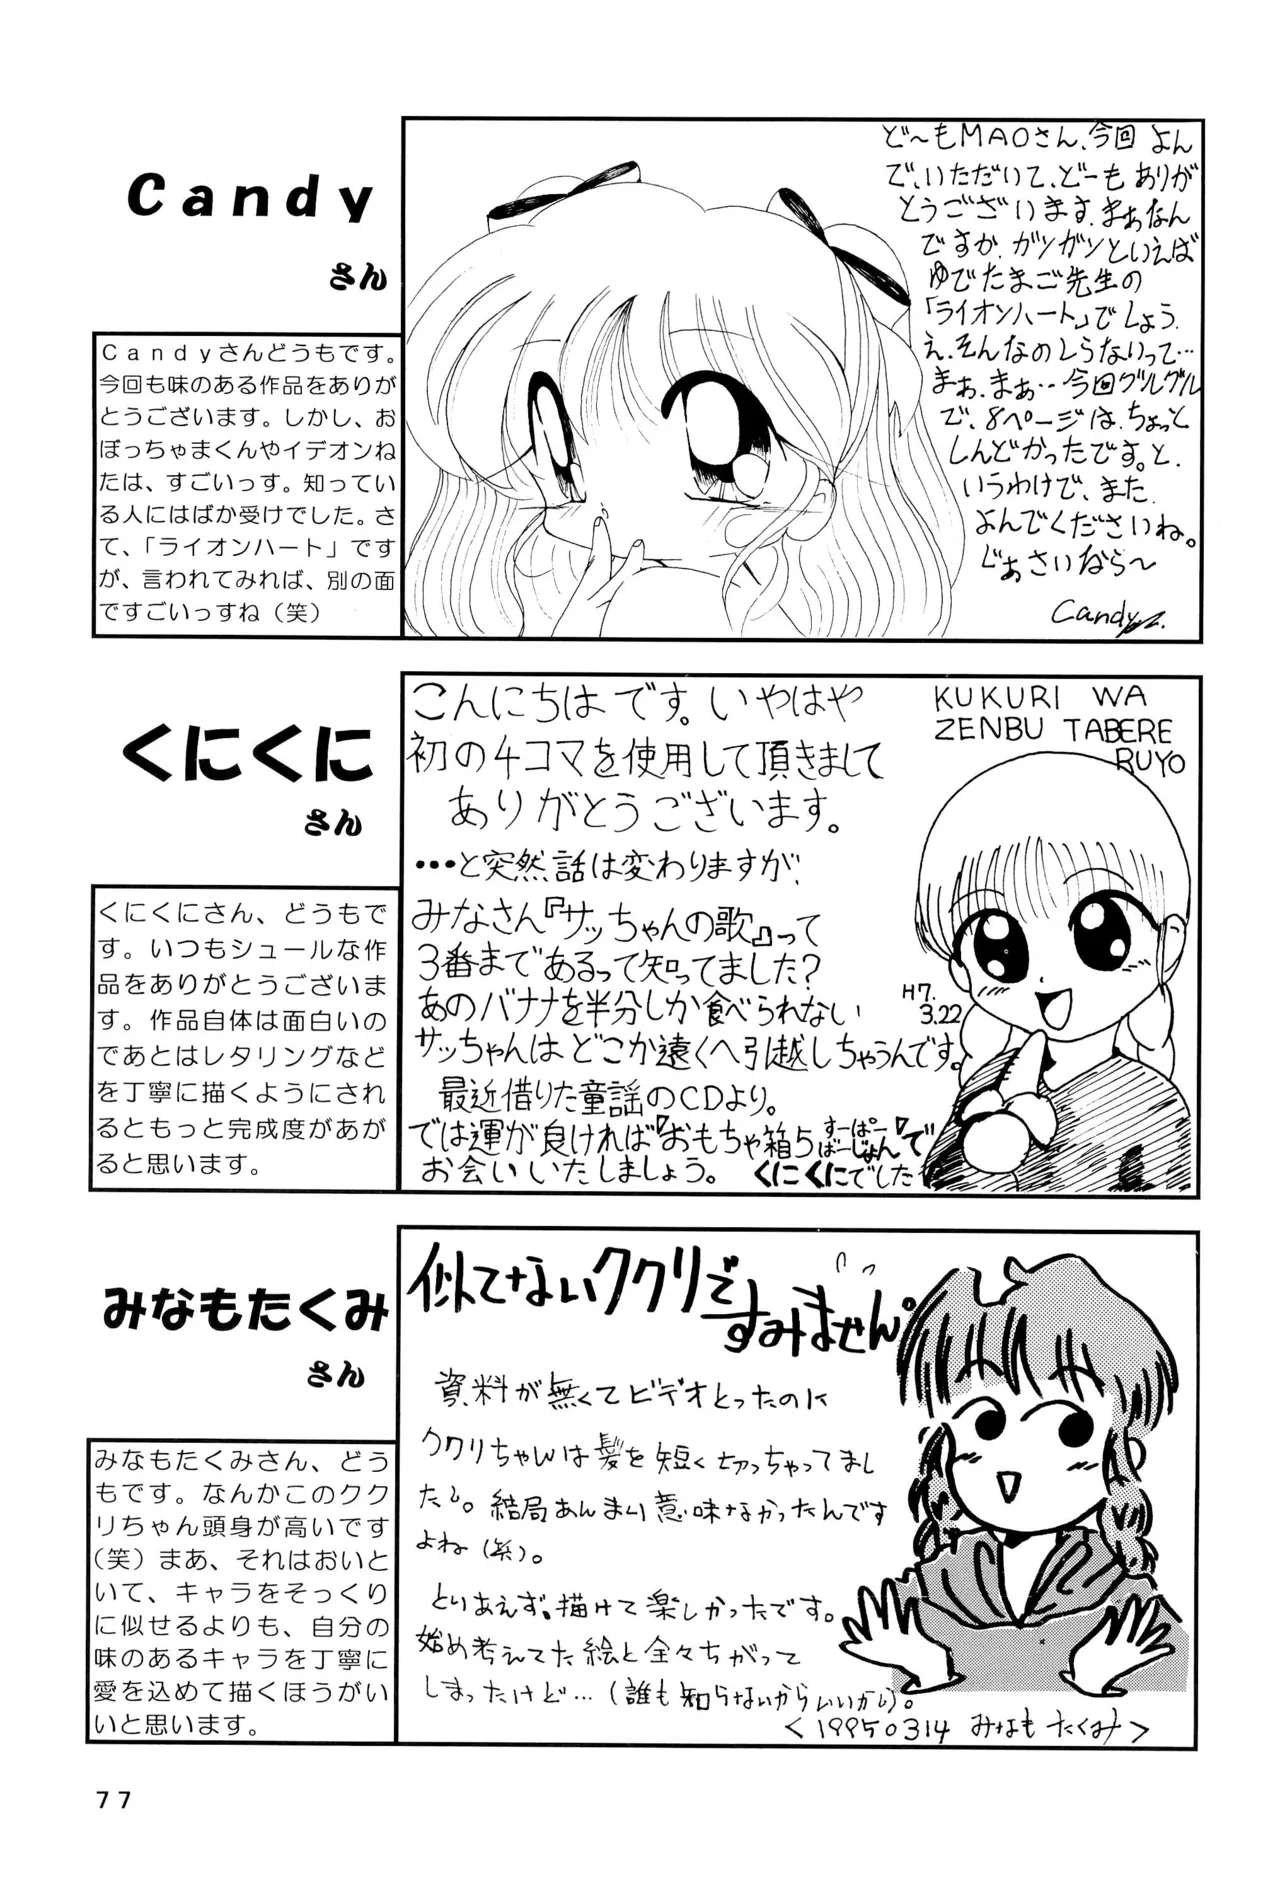 Candy
さん
Candyさんどうもです。
今回も味のある作品をありが
とうございます。しかし、お
ぼっちゃまくんやイデオンね
たは、すごいっす。知ってい
る人にはばか受けでした。さ
て、「ライオンハート」です
が、言われてみれば、別の面
ですごいっすね（笑）
ど〜もMAOさん、今回 よん
で、いただいて、どーも ありが
とうございます。まぁなん
ですか、ガンガンといえば
ゆでたまご先生の
「ライオンハート」でしょう、
え、そんなのしらないって…
まぁ、まぁ… 今回グルグル
で、8ページは、ちょっと
しんどかったです。と、
いうわけで、また、
よんでくださいね。
じぁさいなら〜
Candy
くにくに
さん
くにくにさん、どうもで
す。いつもシュールな作
品をありがとうございま
す。作品自体は面白いの
であとはレタリングなど
を丁寧に描くようにされ
るともっと完成度があが
ると思います。
こんにちは です。いやはや
初の4コマを使用して頂きまして
ありがとうございます。
…と突然話は変わりますが、
みなさん『サッちゃんの歌』って
3番まであるって知ってました？
あのバナナを半分しか食べられない
サッちゃんは どこか遠くへ引越しちゃうんです。
最近借りた童謡のCDより。
では運が良ければ『おもちゃ箱5 すーぱーばーじょん』で
お会いいたしましょう。 くにくにでした
KUKURI WA
ZENBU TABERE
RUYO
H7.
3.22
みなもたくみ
さん
みなもたくみさん、どう
もです。なんかこのクク
リちゃん頭身が高いです
（笑）まあ、それはおいと
いて、キャラをそっくり
に似せるよりも、自分の
味のあるキャラを丁寧に
愛を込めて描くほうがい
いと思います。
似てないククリで
すみません。
資料が無くてビデオとったのに
ククリちゃんは髪を短く切っちゃってまし
たし。結局あんまり意味なかったんです
よね（笑）。
とりあえず、描けて楽しかったです。
始め考えてた絵と全々ちがって
しまったけど…（誰も知らないからいいから）。
＜19950314 みなも たくみ＞
77